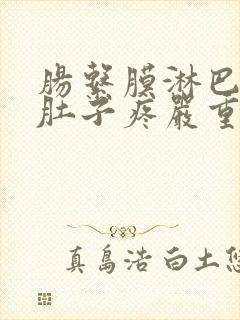 腸繫膜淋巴
肚子疼嚴重
真島浩 白土悠